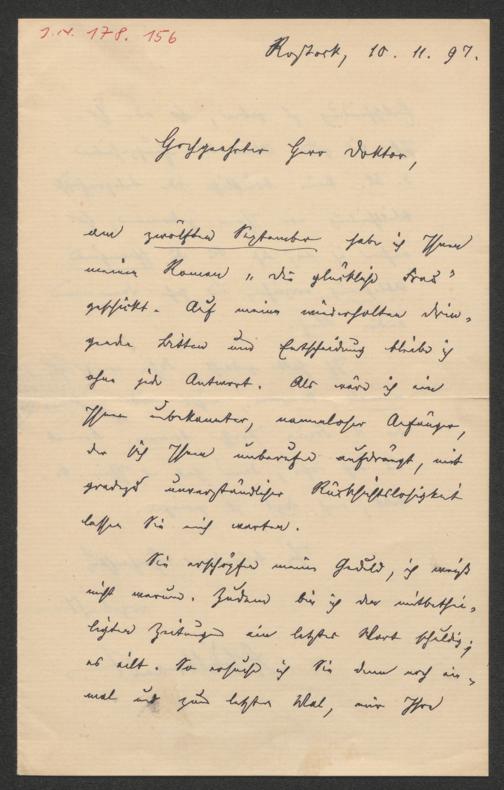 J. N. 178. 156
Rostock, 10. 11. 97.
Hochgeehrter Herr Doktor,
am zwölften September habe ich Ihnen
meinen Roman „Die glückliche Frau"
geschickt. Auf meine wiederholten drin-
genden Bitten um Entscheidung bleibe ich
ohne jede Antwort. Als wäre ich ein
Ihnen unbekannter, namenloser Anfänger,
der sich Ihnen unberufen aufdrängt, mit
geradezu unverständlicher Rücksichtslosigkeit
lassen Sie mich warten.
Sie erschöpfen meine Geduld, ich weiß
nicht warum. Zudem bin ich den mitbethei-
ligten Zeitungen ein letztes Wort schuldig;
es eilt. So ersuche ich Sie denn noch ein-
mal und zum letzten Mal, mir Ihre